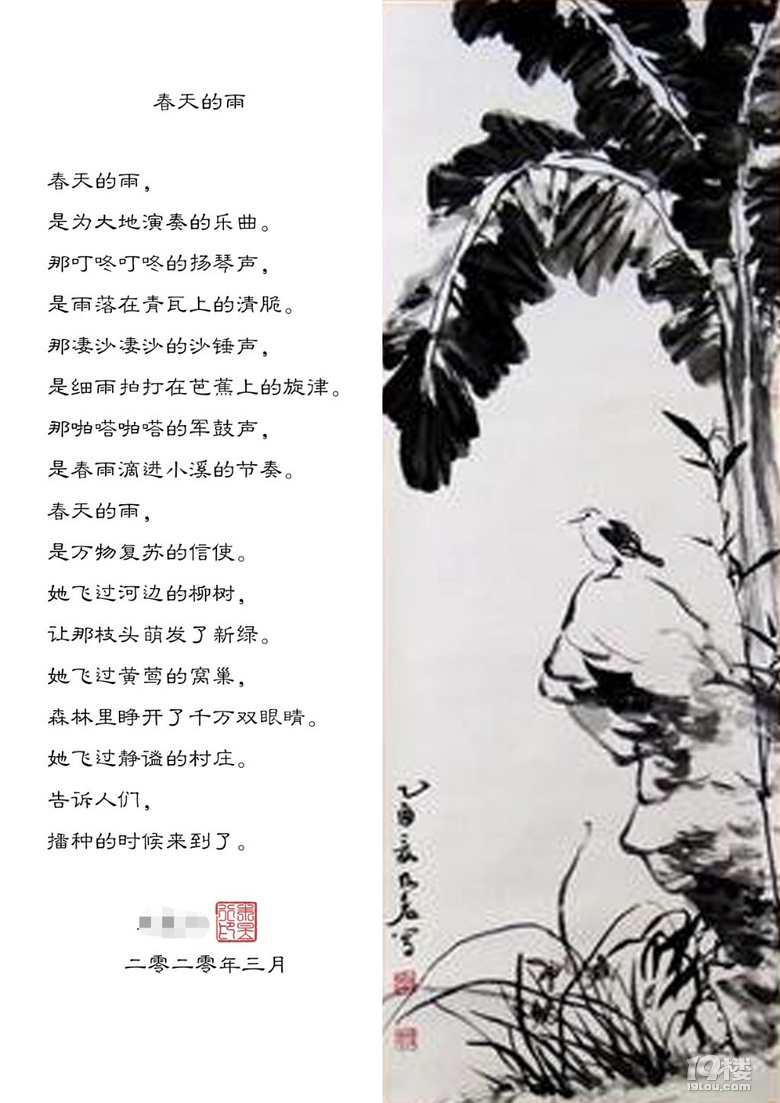 春天的雨
春天的雨，
是为大地演奏的乐曲。
那叮咚叮咚的扬琴声，
是雨落在青瓦上的清脆。
那凄沙凄沙的沙锤声，
是细雨拍打在芭蕉上的旋律。
那啪嗒啪嗒的军鼓声，
是春雨滴进小溪的节奏。
春天的雨，
是万物复苏的信使。
她飞过河边的柳树，
让那枝头萌发了新绿。
她飞过黄莺的窝巢，
森林里睁开了千万双眼睛。
她飞过静谧的村庄。
告诉人们，
播种的时候来到了。
二零二零年三月
乙酉
写
19楼
19lou.com